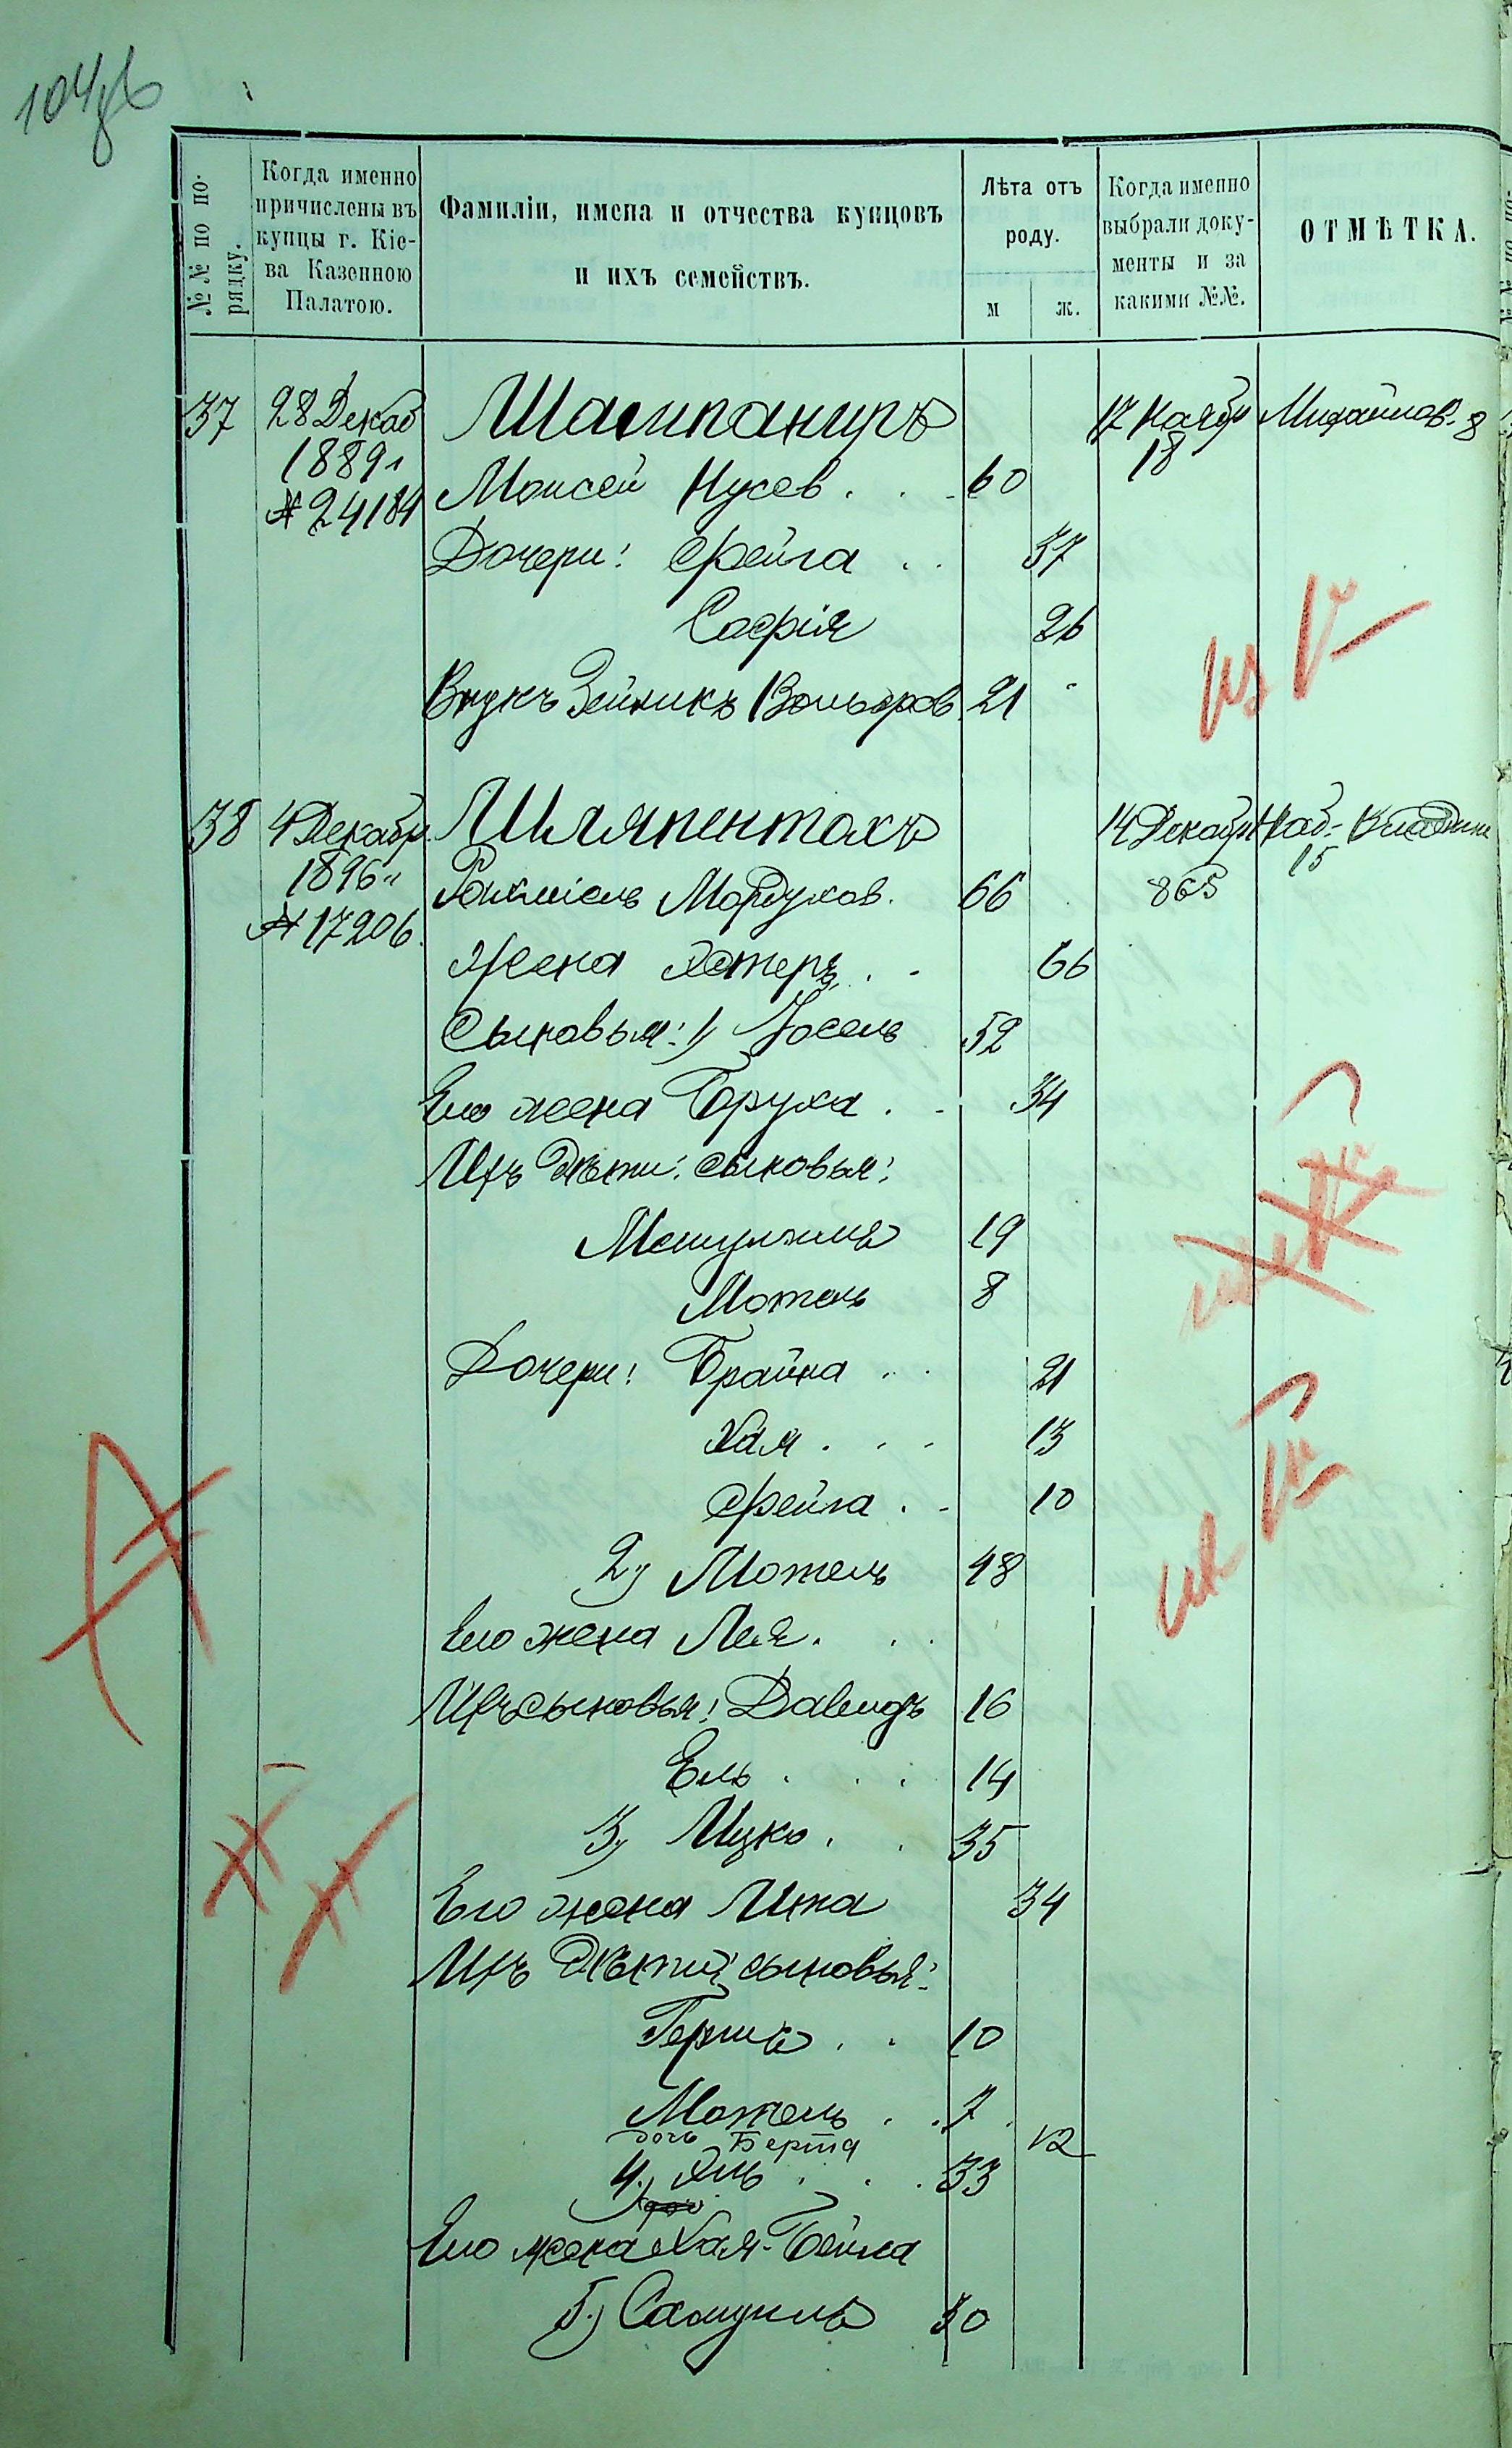 104об
№№ по порядку.
Когда именно причислены въ купцы г. Кіева Казенною Палатою.
Фамиліи, имена и отчества купцовъ и ихъ семействъ.
Лѣта отъ роду.
м
ж.
Когда именно выбрали документы и за какими №№.
ОТМѢТКА.
37 28 Декаб Шампаниръ 17 Ноябр Михайлов. 8
1889 г 18
№ 24184 Моисей Нусев. 60
Дочери: Фейга 37
Софія 26
Внукъ Зейликъ Вольфров 21
38 4 Декабр. Шляпентохъ 14 Декабр
1896 г Рахміель Мордухов. 66 865 15
№ 17206
Жена Эстеръ 66
Сыновья: 1) Іосель 52
Его жена Боруха 34
Ихъ дѣти: сыновья:
Мешулимъ 19
Мотель 8
Дочери: Брайна 21
Хая 13
Фейга 10
2) Мотель 48
Его жена Лея.
Ихъ сыновья: Давидъ 16
Ель 14
3) Ицко 35
Его жена Ита 34
Ихъ дѣти: сыновья:
Гершъ 10
Мотель 7
дочь Берта 12
4) Эль 33
Его жена Хая-Бейла
5) Самуилъ 30